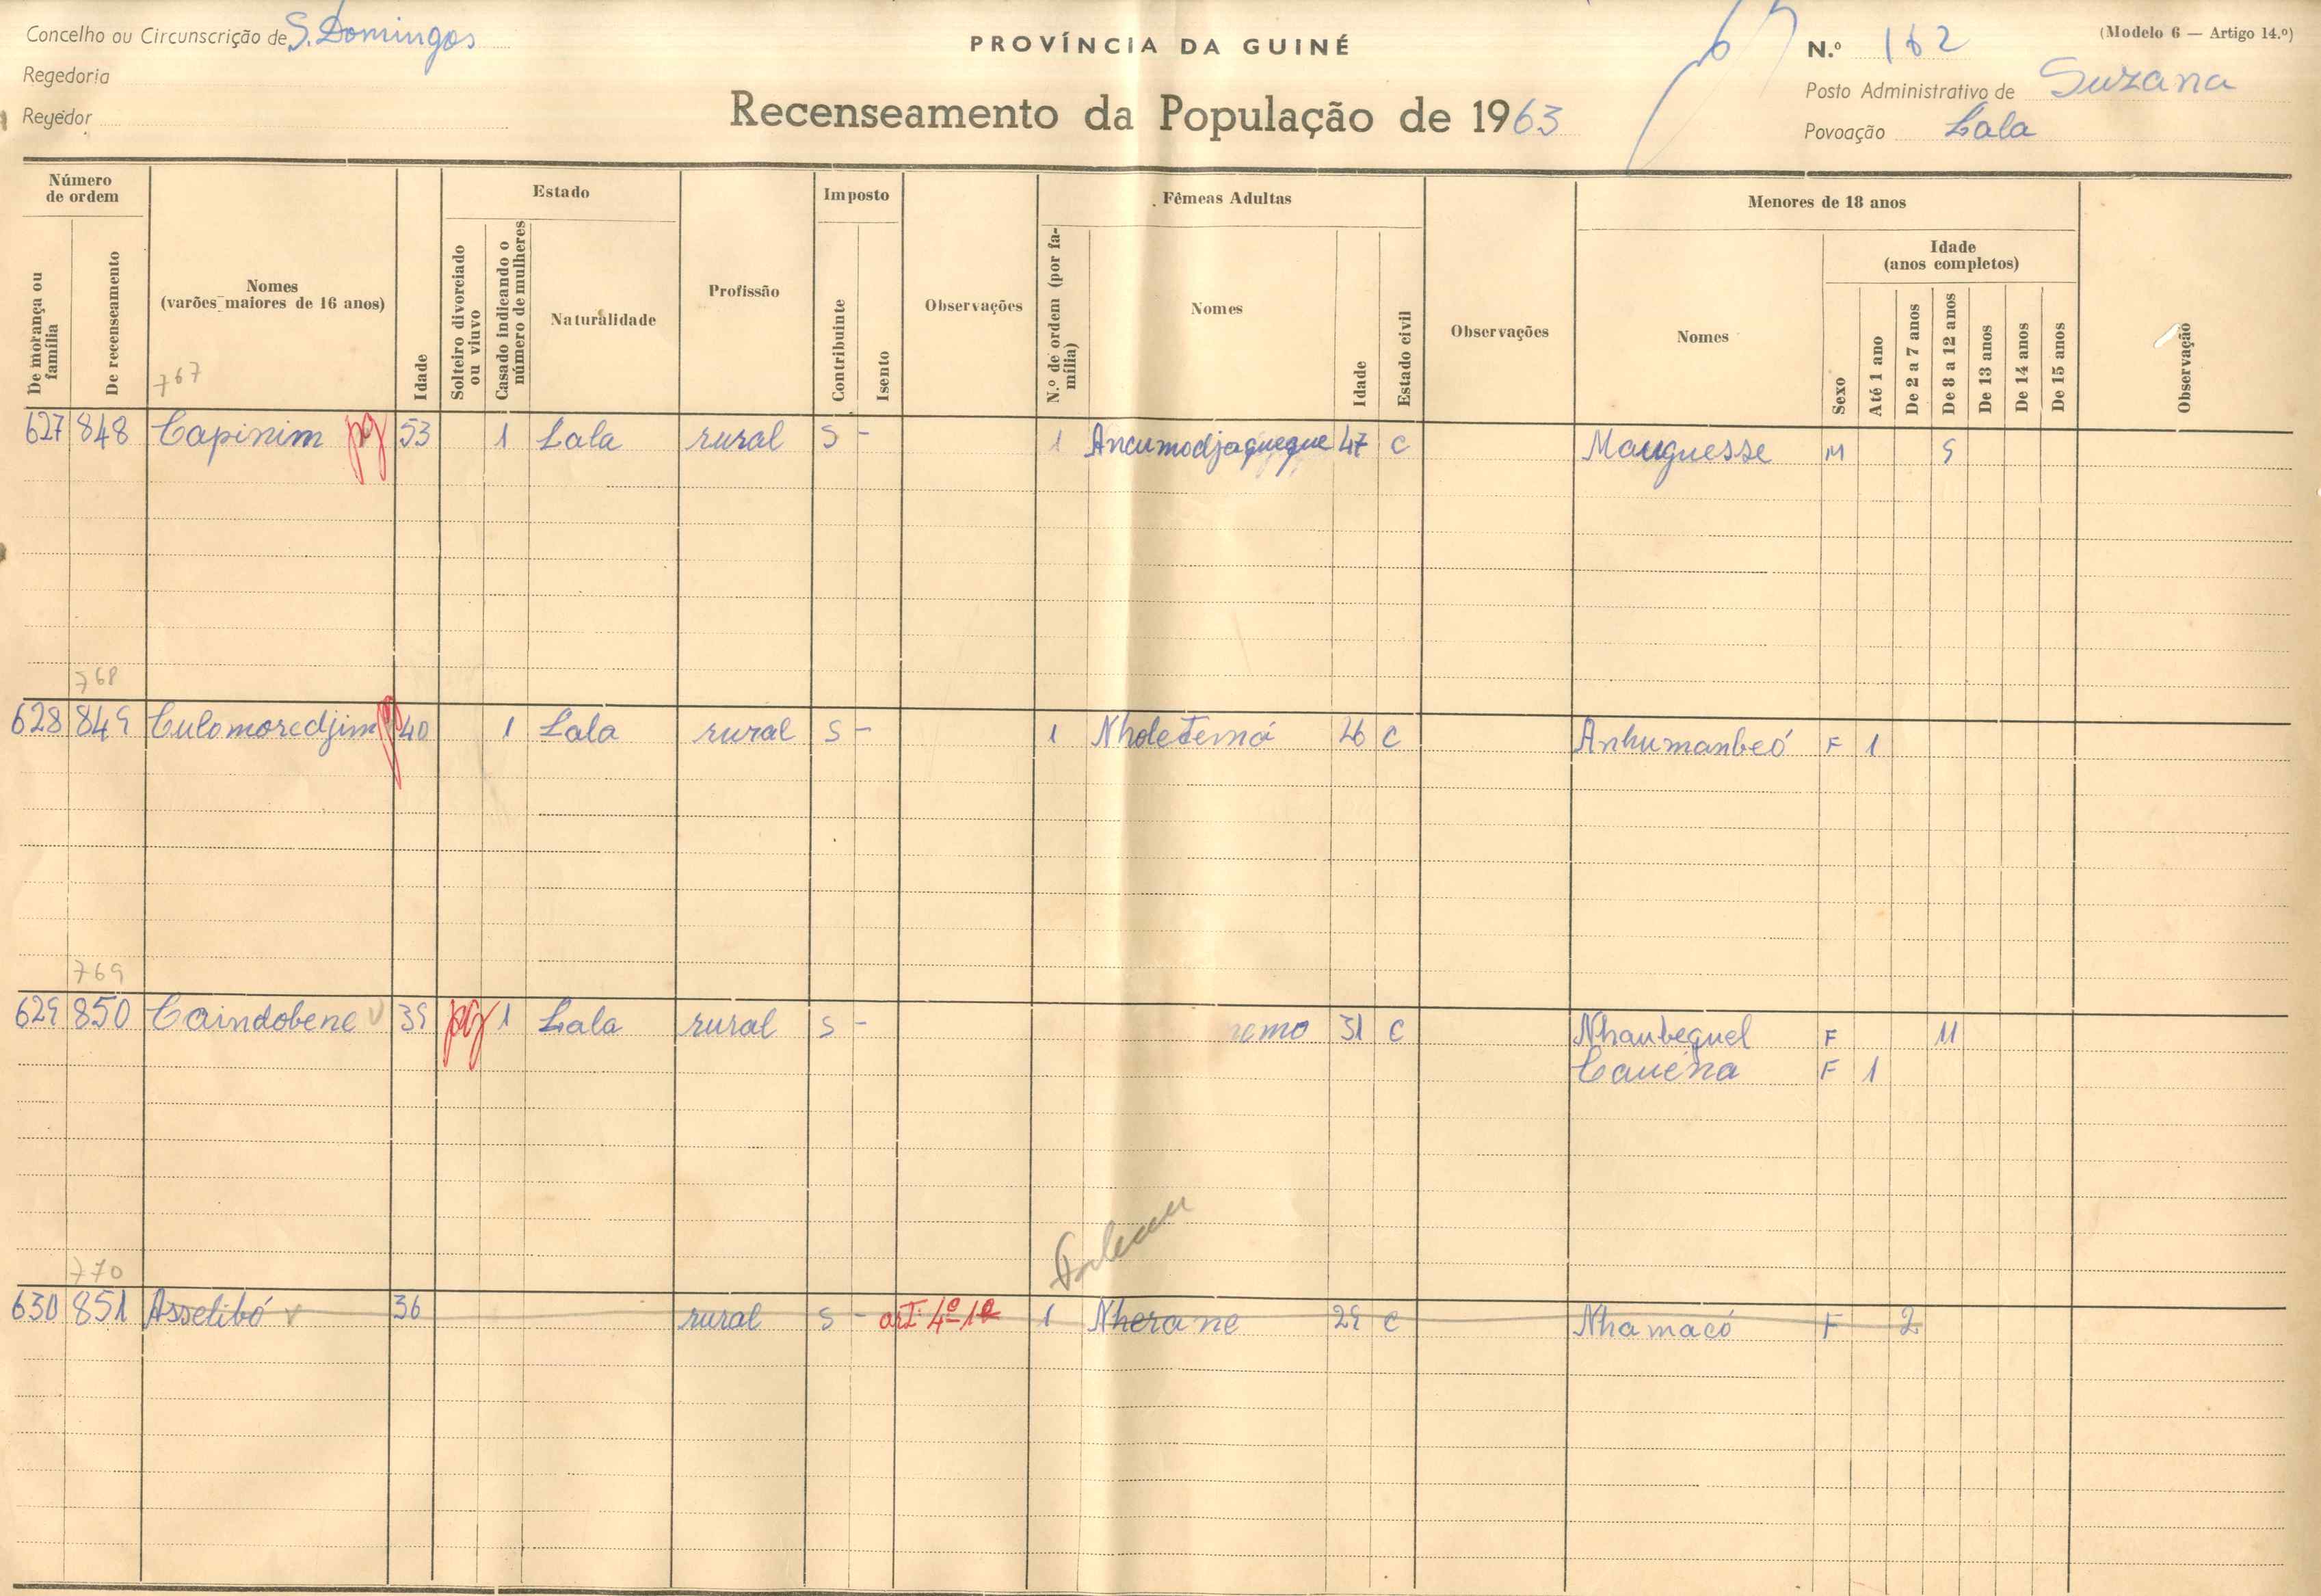 Concelho ou Circunscrição de S. Domingos
Regedoria
Regedor
PROVÍNCIA DA GUINÉ
Recenseamento da População de 1963
(Modelo 6 — Artigo 14.º)
N.º 162
Posto Administrativo de Suzana
Povoação Lala
Número de ordem
De morança ou família
De recenseamento
Nomes (varões maiores de 16 anos)
Idade
Estado
Solteiro divorciado ou viuvo
Casado indicando o número de mulheres
Naturalidade
Profissão
Imposto
Contribuinte
Isento
Observações
Fêmeas Adultas
N.º de ordem (por família)
Nomes
Idade
Estado civil
Observações
Menores de 18 anos
Nomes
Sexo
Idade (anos completos)
Até 1 ano
De 2 a 7 anos
De 8 a 12 anos
De 13 anos
De 14 anos
De 15 anos
Observação
767
627 848 Capinim pg 53 1 Lala rural S - 1 Ancumodjaqueque 47 C Mauguesse M 9
768
628 849 Culomoredjim pg 40 1 Lala rural S - 1 Nholetemá 26 C Anhumanbeó F 1
769
629 850 Caindobene v 39 pg 1 Lala rural S - remo 31 C Nhaubequel F 11
Cauéna F 1
770
630 851 Asselibó v 36 rural S - art. 4º 1º 1 Nherane 29 C Nhamacó F 2